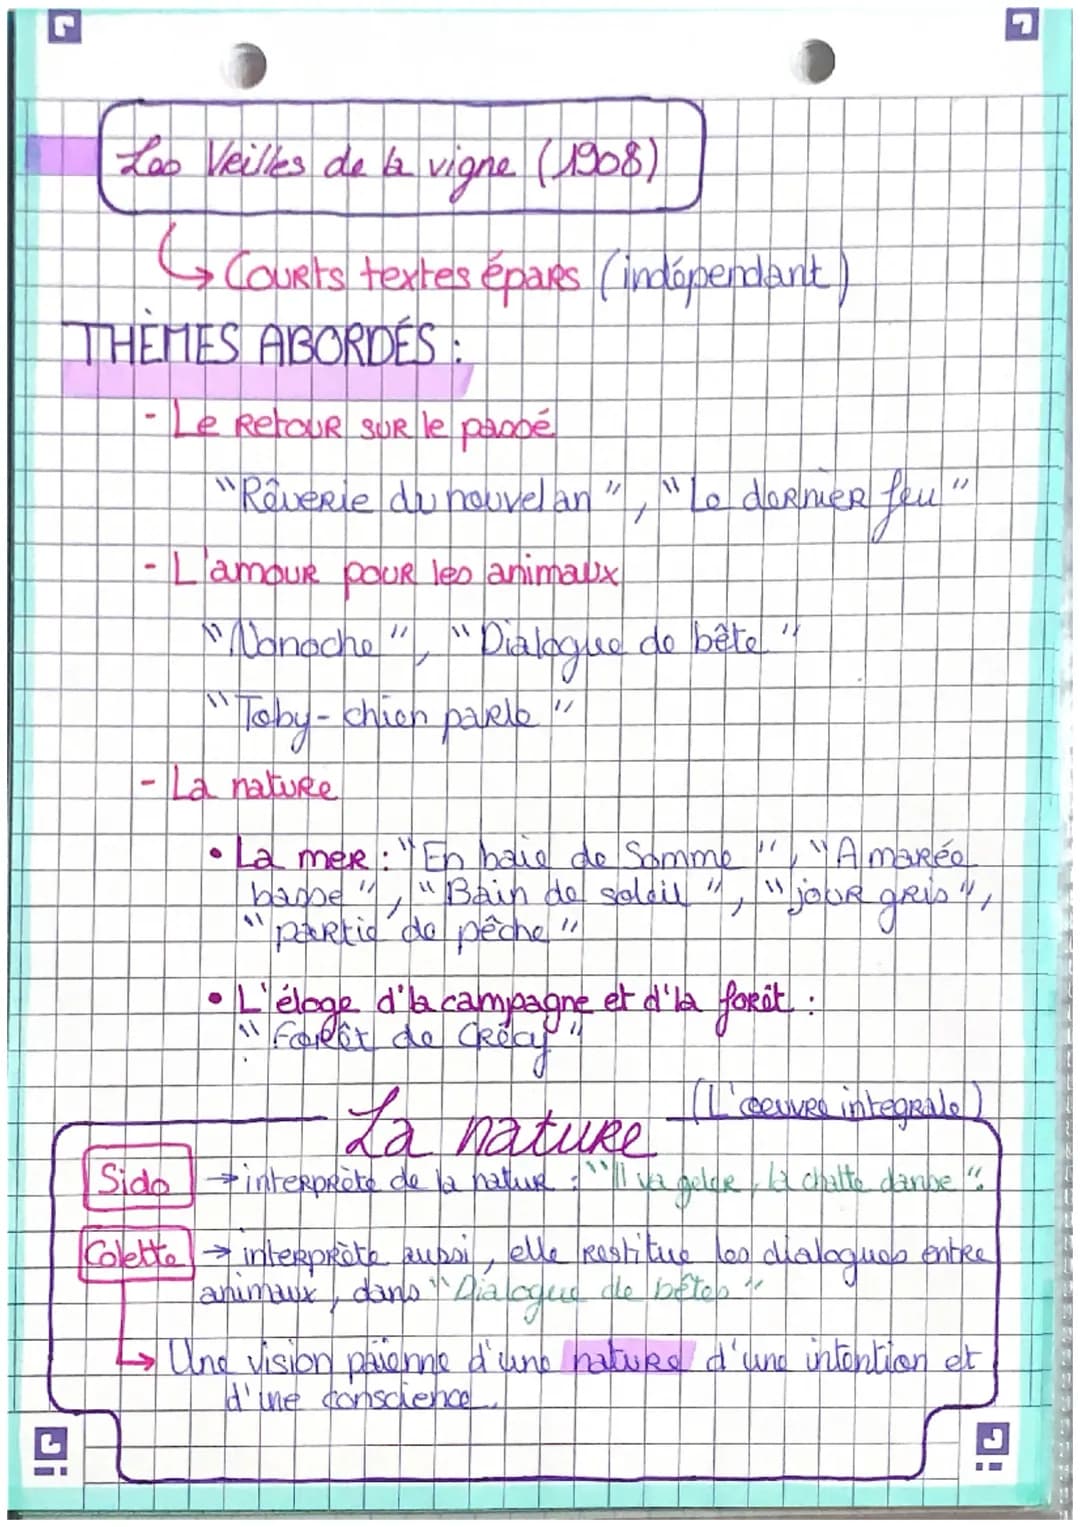 Les Veilles de la vigne (1908)
Courts textes épars (indépendant)
THÈMES ABORDÉS :
- Le retour sur le passé
"Rêverie du nouvel an", "Le dernier feu"
- L'amour pour les animaux
"Nonoche", "Dialogue de bête"
"Toby-chien parle"
- La nature
• La mer : "En baie de Somme", "A marée
basse", "Bain de soleil", "jour gris",
"partie de pêche"
• L'éloge d'la campagne et d'la forêt :
"Forêt de Crécy"
(L'oeuvre integrale)
La nature
Sido → interprète de la natur : "Il va geler, la chatte danse".
Colette → interprète aussi, elle restitue les dialogues entre
animaux, dans "Dialogue de bêtes"
↳ Une vision païenne d'une nature d'une intention et
d'une conscience.